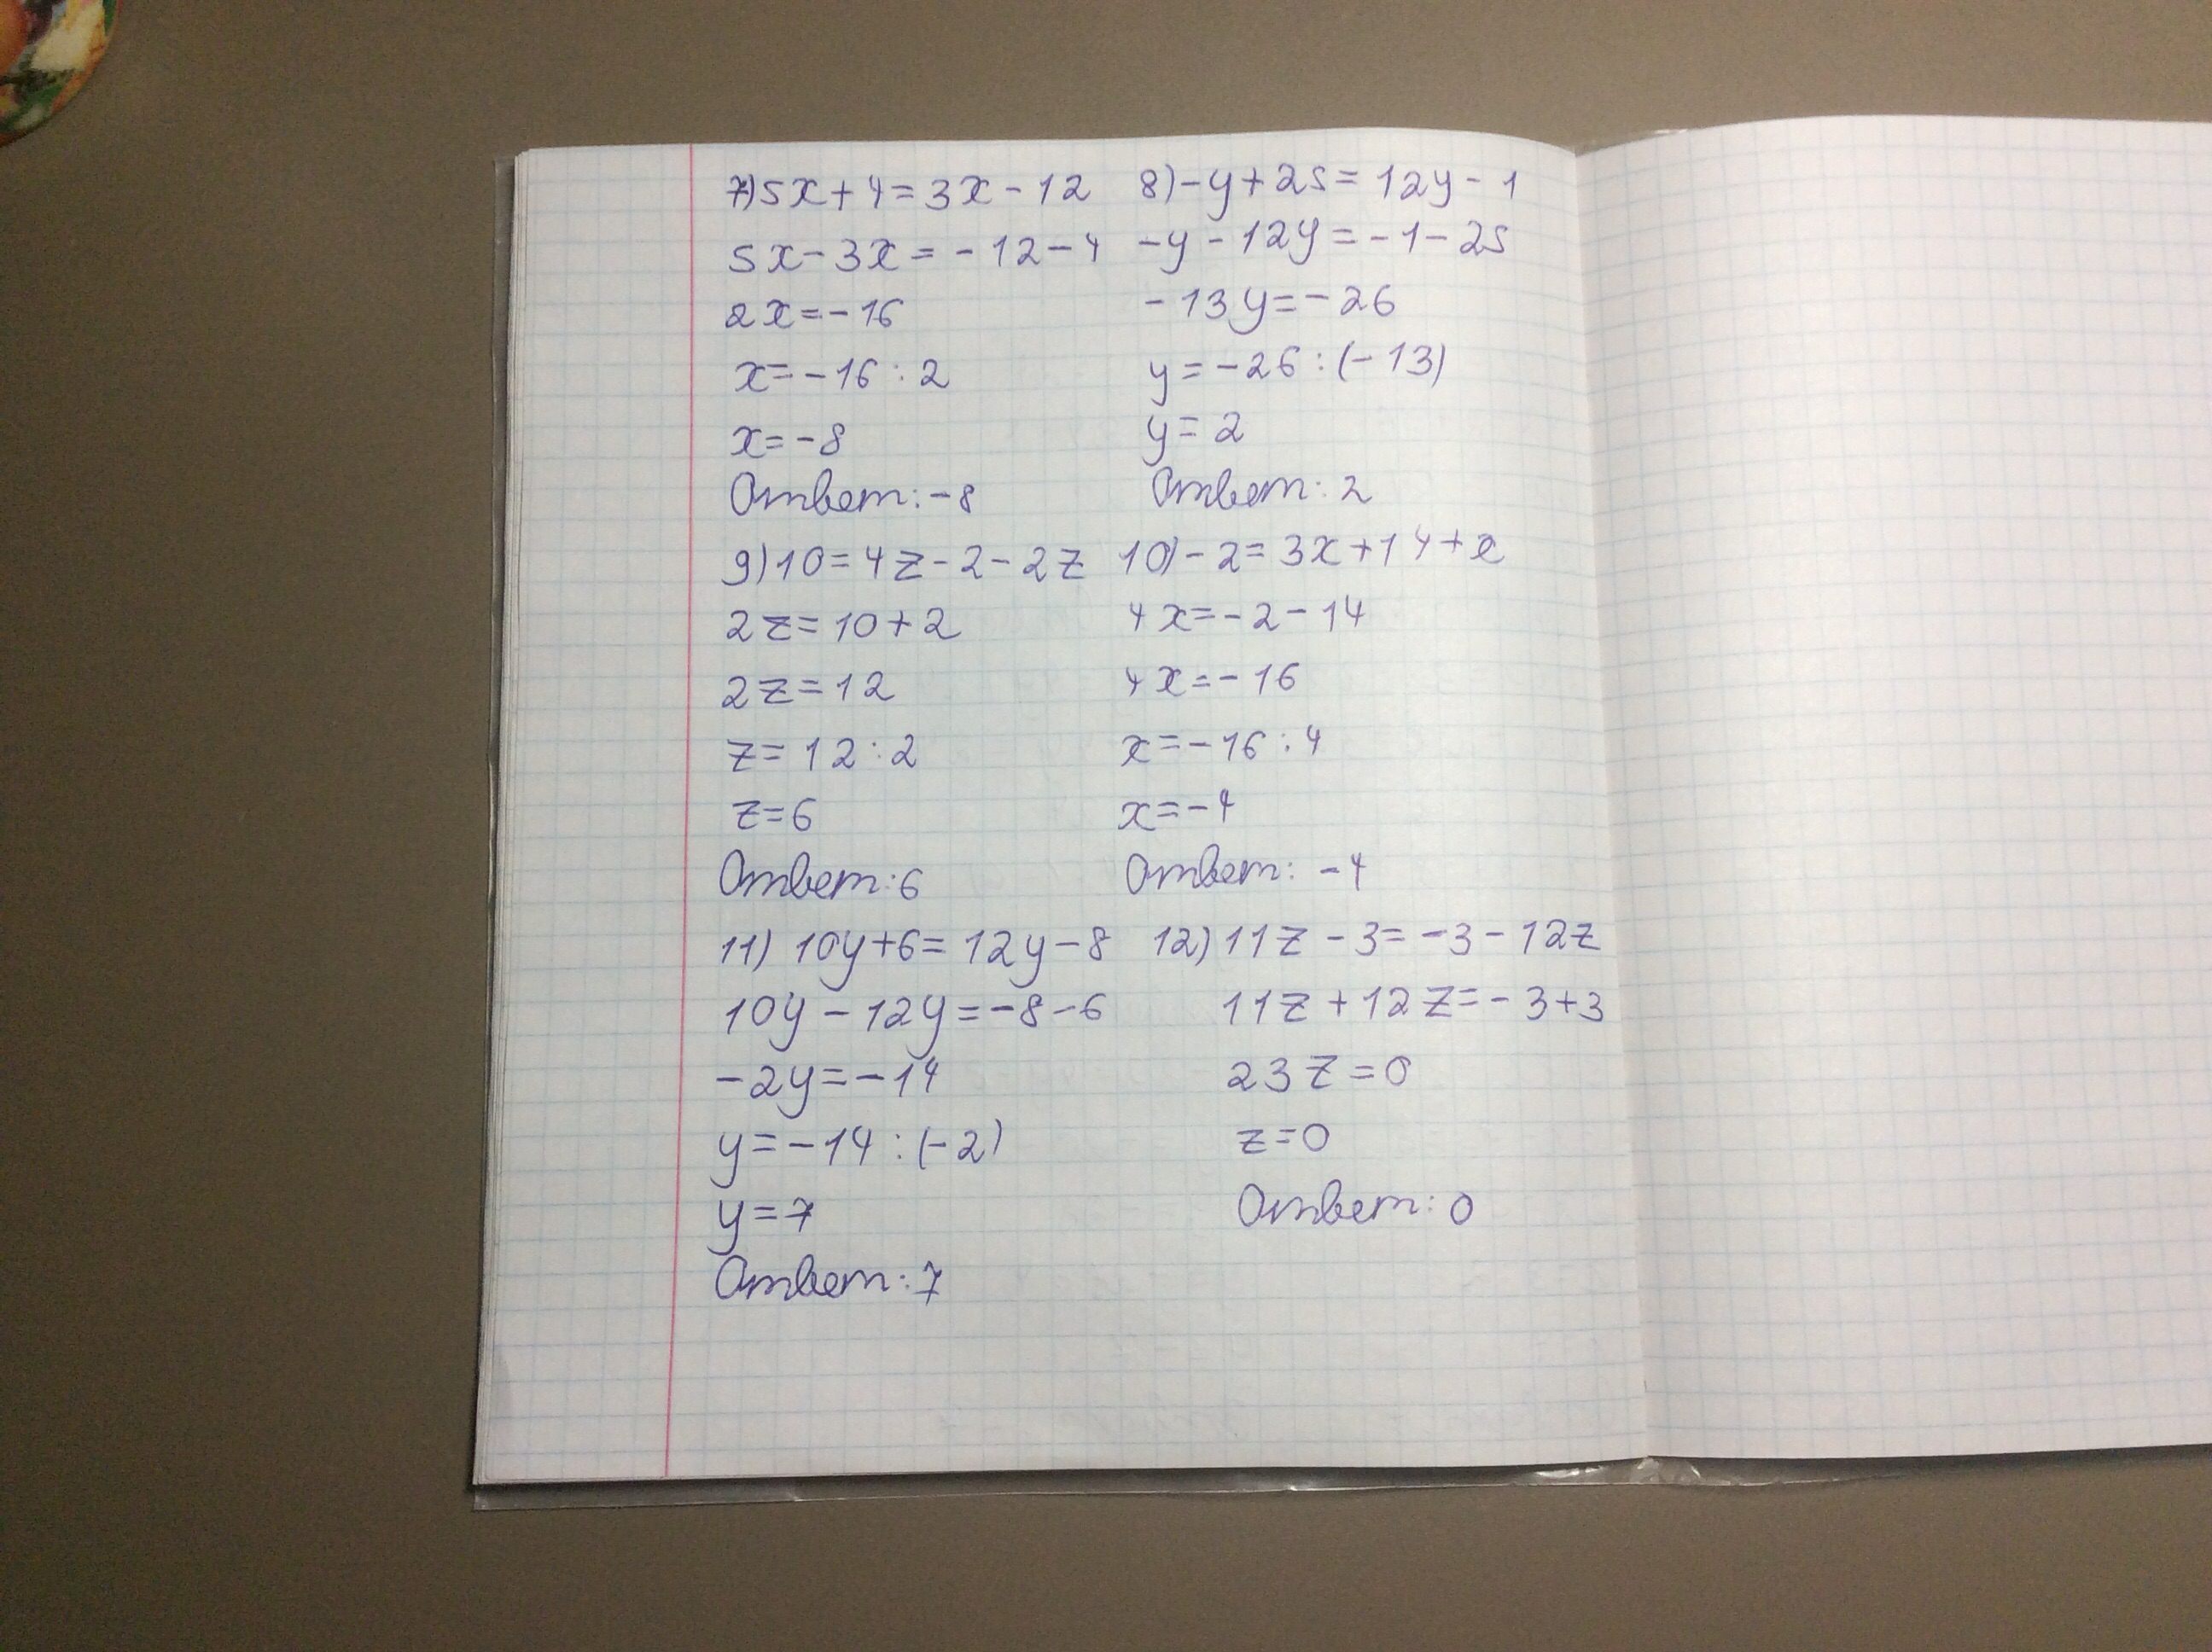 7) 5x+4=3x-12
5x-3x=-12-4
2x=-16
x=-16:2
x=-8
Ответ: -8
8) -y+25=12y-1
-y-12y=-1-25
-13y=-26
y=-26:(-13)
y=2
Ответ: 2
9) 10=4z-2-2z
2z=10+2
2z=12
z=12:2
z=6
Ответ: 6
10) -2=3x+14+x
4x=-2-14
4x=-16
x=-16:4
x=-4
Ответ: -4
11) 10y+6=12y-8
10y-12y=-8-6
-2y=-14
y=-14:(-2)
y=7
Ответ: 7
12) 11z-3=-3-12z
11z+12z=-3+3
23z=0
z=0
Ответ: 0